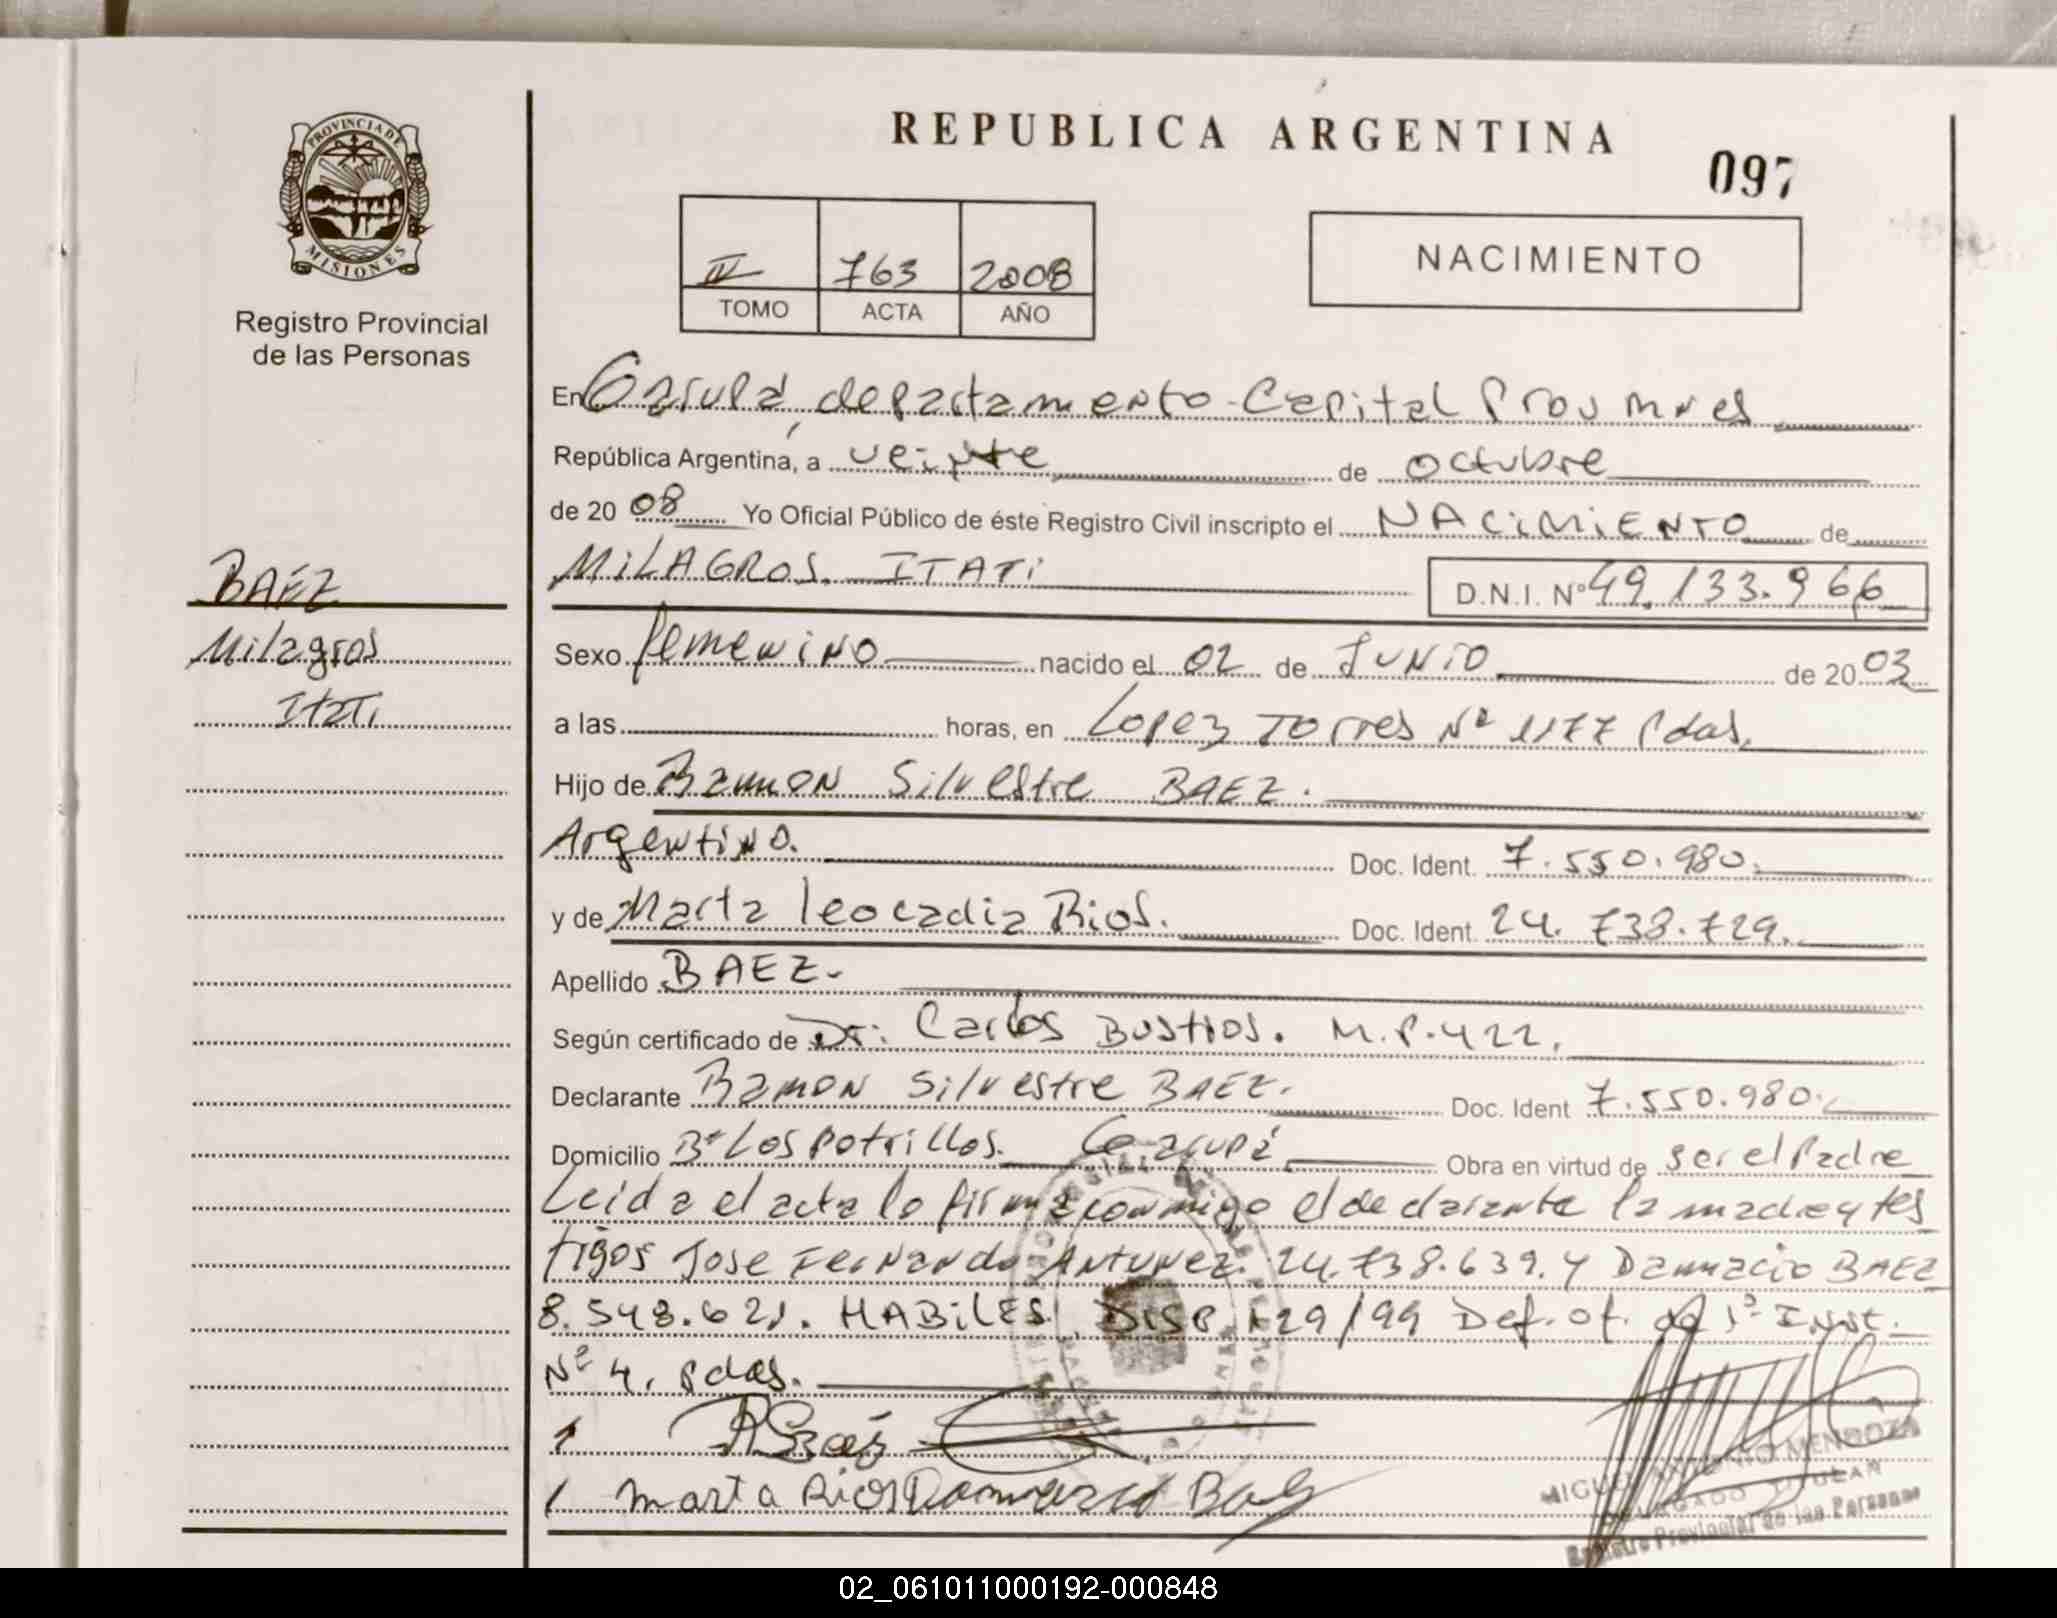 REPUBLICA ARGENTINA
097
PROVINCIA DE
MISIONES
Registro Provincial
de las Personas
IV 763 2008
TOMO ACTA AÑO
NACIMIENTO
En Garupá, departamento Capital Prov Mnes
República Argentina, a veinte de octubre
de 20 08 Yo Oficial Público de éste Registro Civil inscripto el NACIMIENTO de
BAEZ
Milagros
Itati
MILAGROS ITATI D.N.I. Nº 49.133.966
Sexo femenino nacido el 02 de JUNIO de 20 03
a las horas, en Lopez Torres Nº 1177 Pdas.
Hijo de Ramon Silvestre BAEZ.
Argentino. Doc. Ident. 7.550.980.
y de Marta Leocadia Rios. Doc. Ident. 24.738.729.
Apellido BAEZ.
Según certificado de Dr. Carlos Bustios. M.P.422.
Declarante Ramon Silvestre BAEZ. Doc. Ident 7.550.980.
Domicilio Bº Los Potrillos. Garupá Obra en virtud de ser el Padre
Leida el acta lo firma conmigo el declarante la madre y tes
tigos Jose Fernando Antunez. 24.738.639. y Damacio BAEZ
8.548.621. HABILES. DISP 129/99 Def. of. de 1ª Inst.
Nº 4. Pdas.
Marta Rios Damacio Baez
MIGUEL ANTONIO MENDOZA
DELEGADO TITULAR
Registro Provincial de las Personas
02_061011000192-000848